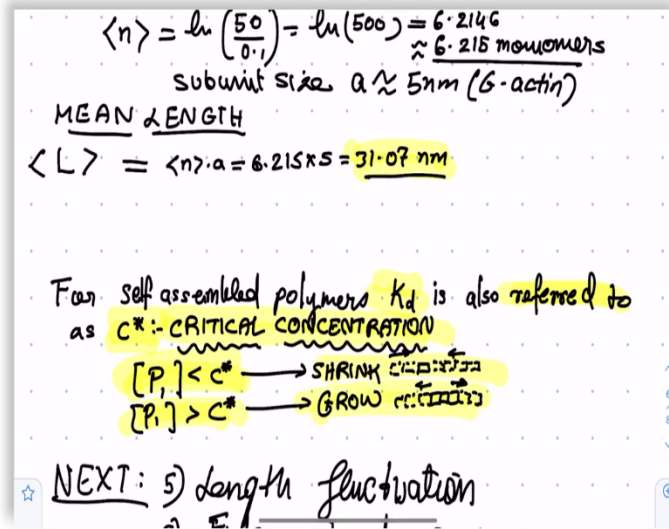 <n> = ln (50/0.1) = ln(500) = 6.2146
≈ 6.215 monomers
subunit size a ≈ 5nm (G-actin)
MEAN LENGTH
<L> = <n>.a = 6.215×5 = 31.07 nm
For self assembled polymers Kd is also referred to
as C* :- CRITICAL CONCENTRATION
[P1] < c* → SHRINK
[P1] > C* → GROW
NEXT: 5) Length fluctuation